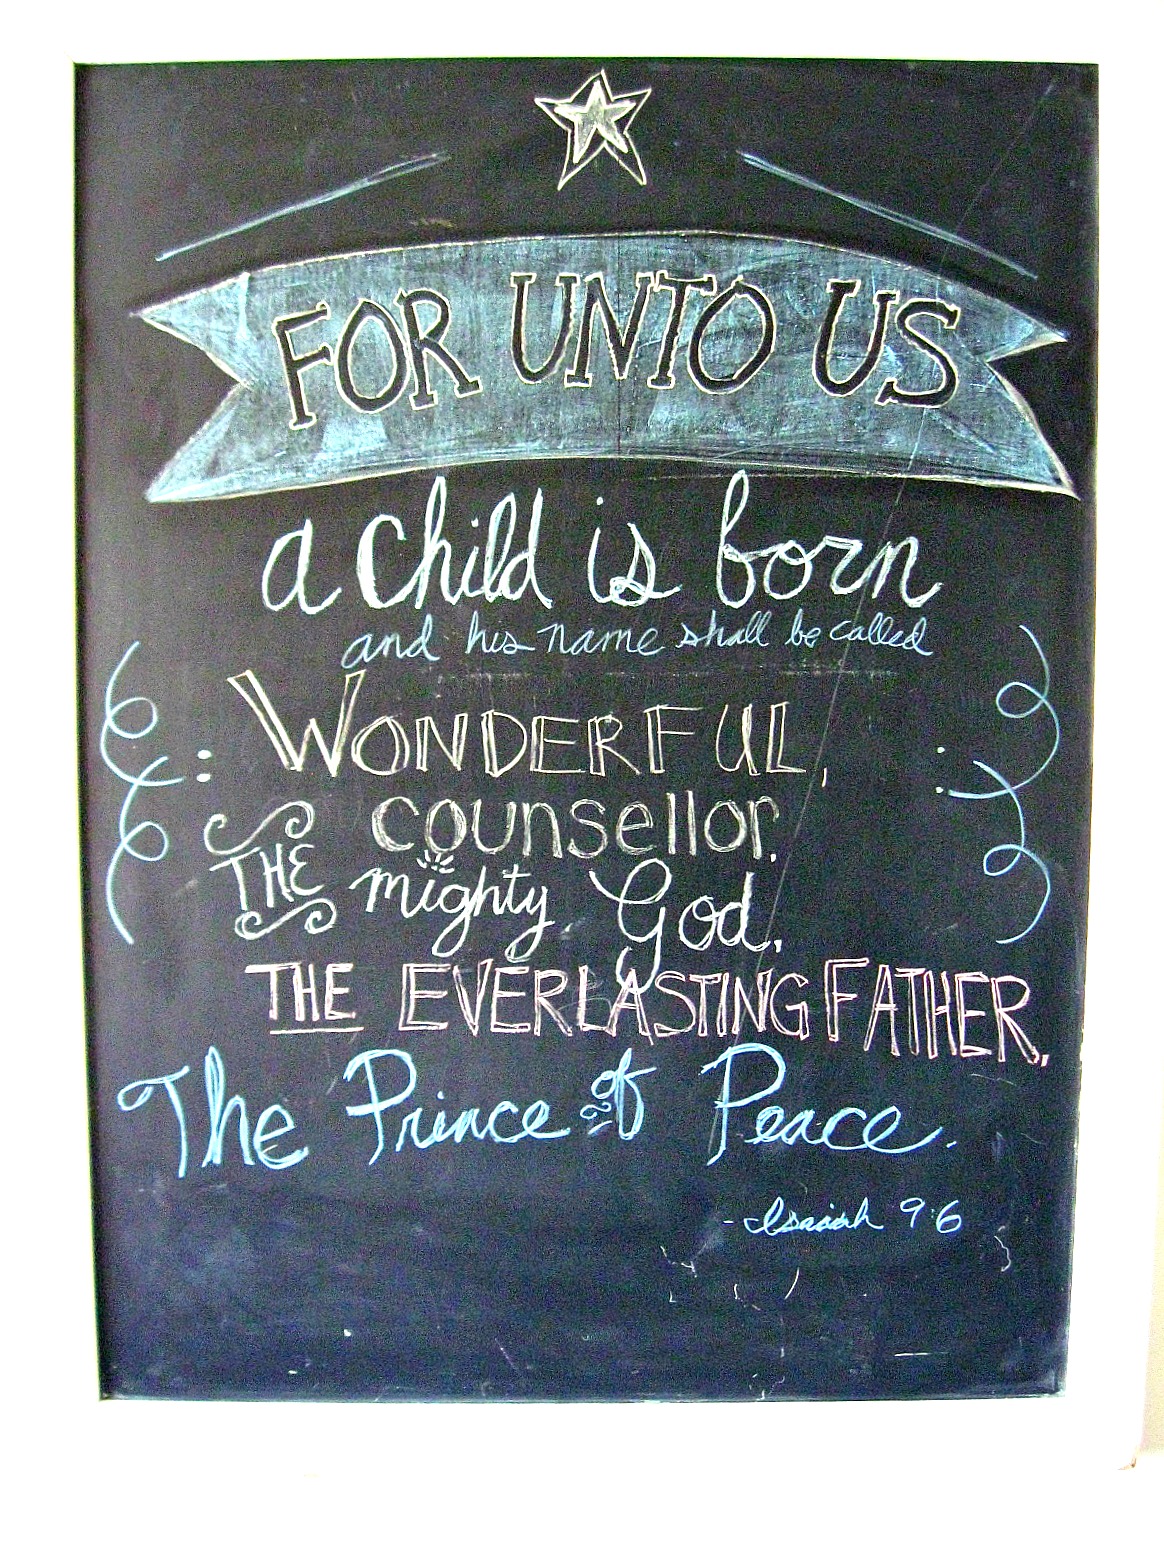 FOR UNTO US
a child is born
and his name shall be called
WONDERFUL,
counsellor,
THE mighty God,
THE EVERLASTING FATHER,
The Prince of Peace.
- Isaiah 9:6